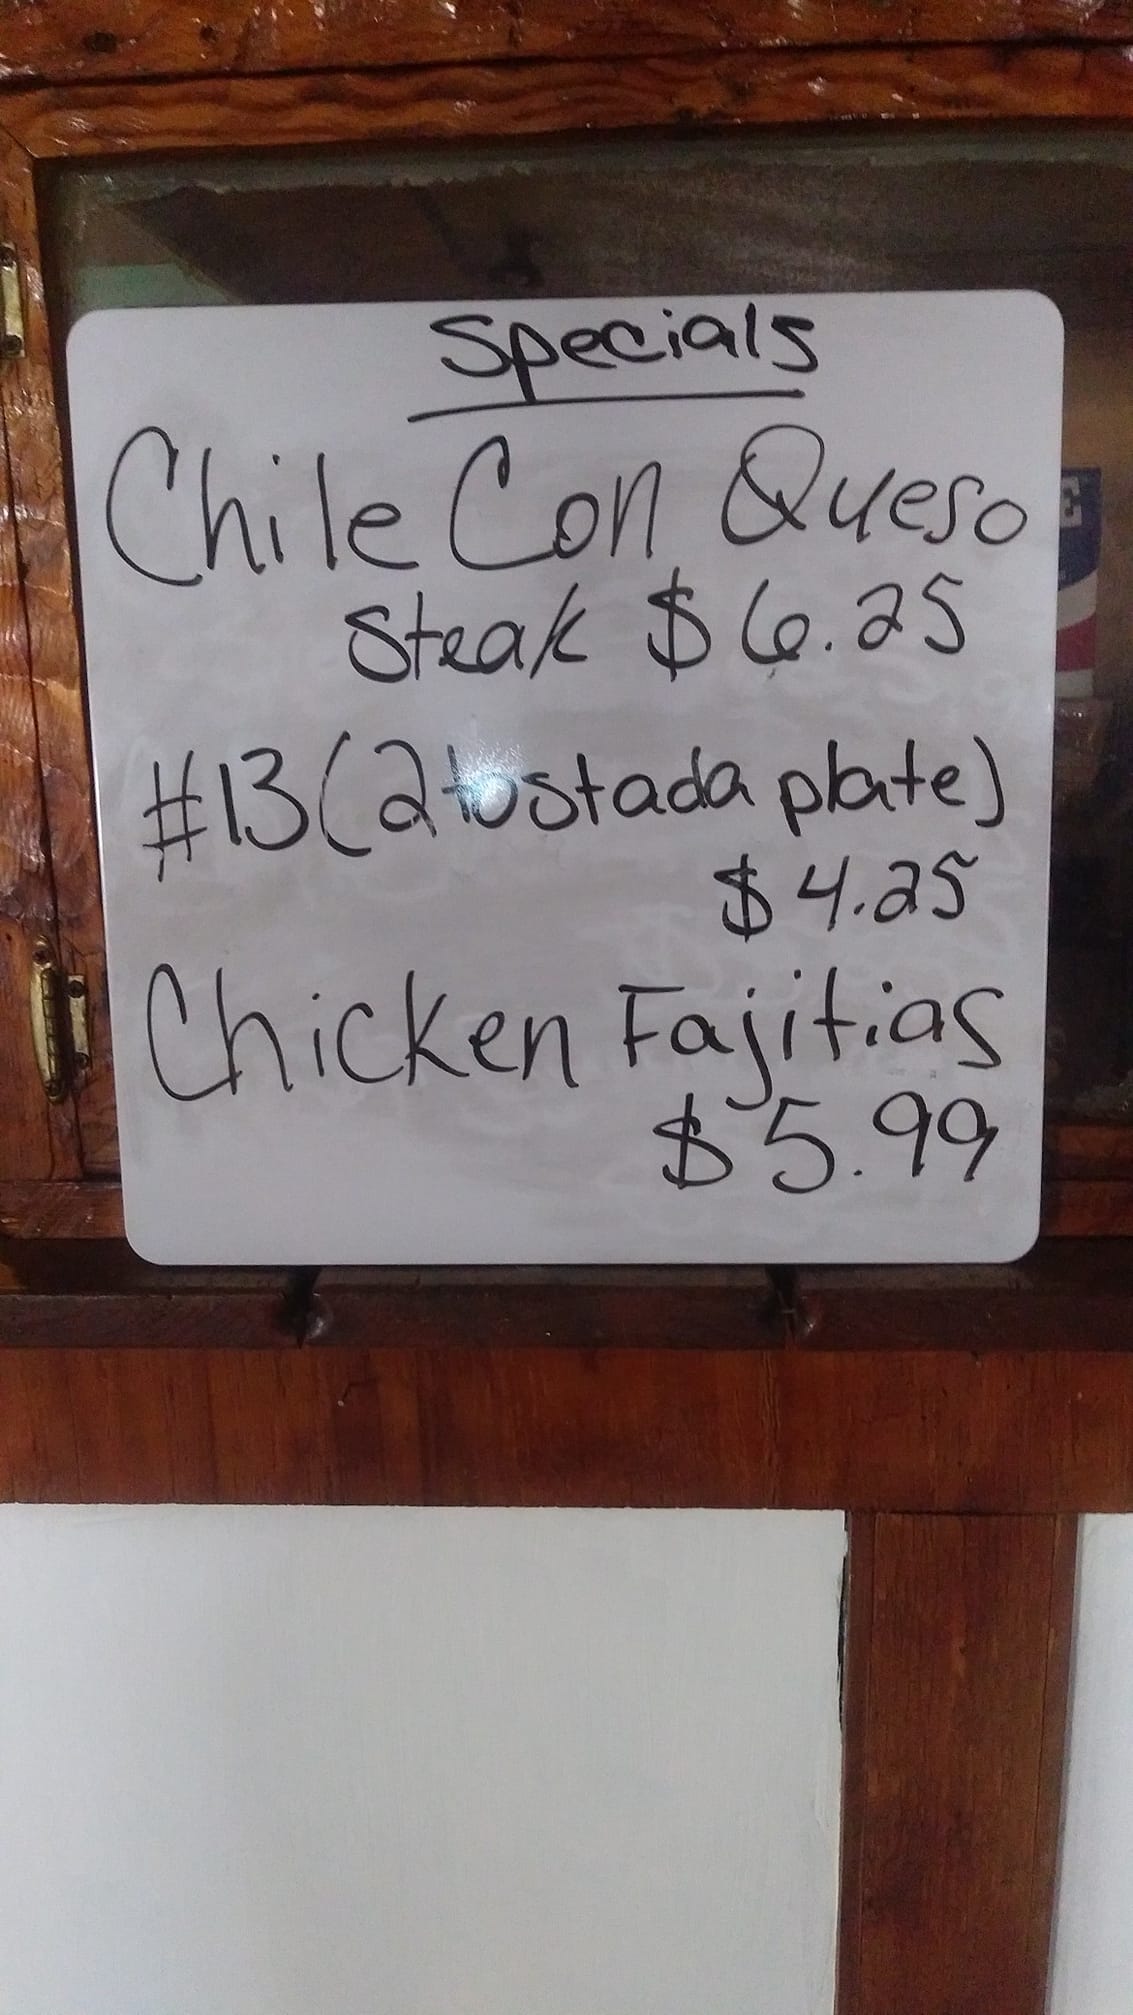 Specials
Chile Con Queso
Steak $6.25
#13 (2 tostada plate)
$4.25
Chicken Fajitias
$5.99
E